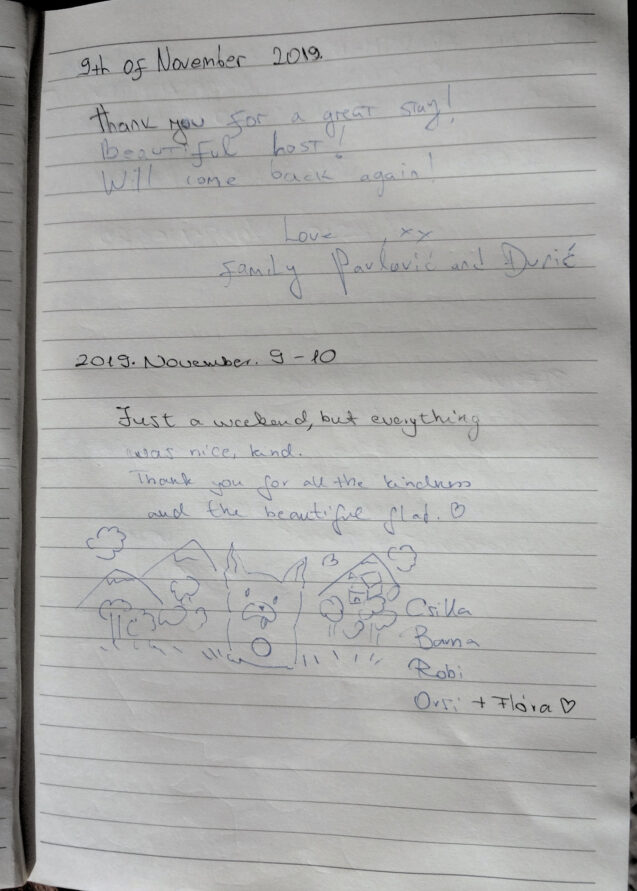 9th of November 2019.
Thank you for a great stay!
Beautiful host!
Will come back again!
Love, xx
Family Pavlović and Đurić
2019. November. 9-10
Just a weekend, but everything
was nice, kind.
Thank you for all the kindness
and the beautiful flat. ♡
Csilla
Barna
Robi
Orsi + Flóra ♡